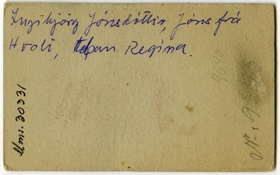 Ingibjörg Jónsdóttir, Jóns frá
Hvoli, Regina.
Mms. 30331